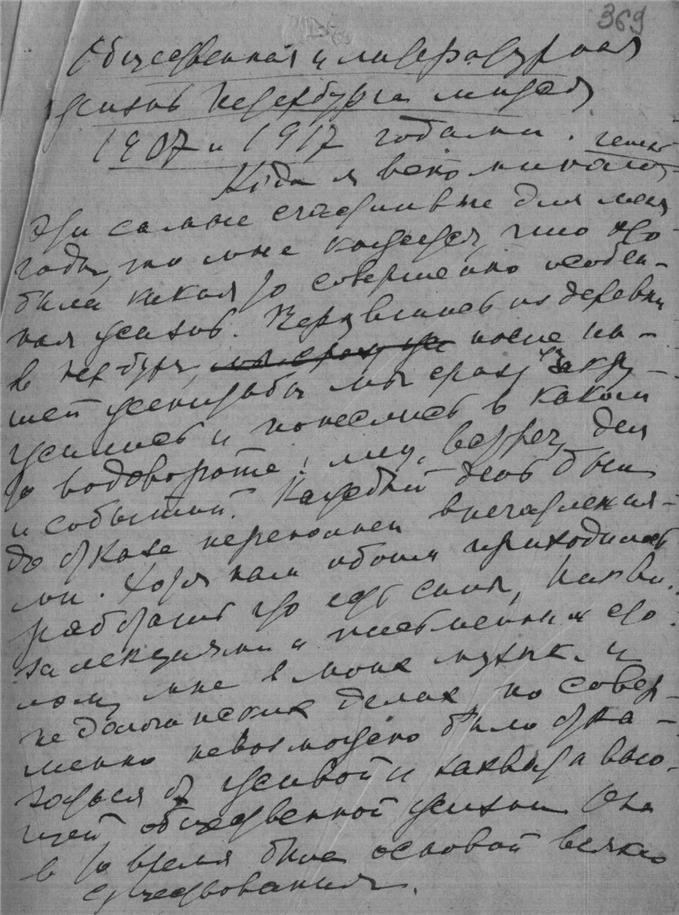 369
Общественная и литературная
жизнь Петербурга между
1907 и 1917 годами.
Когда я вспоминаю
эти самые счастливые для меня
годы, то мне кажется, что это
была какая то совершенно особен-
ная жизнь. Вернувшись из деревни
в Петербург, мы сразу же после на-
шей женитьбы мы сразу закру-
жились и понеслись в каком
то водовороте: людей, встреч, дел
и событий. Каждый день был
до отказа переполнен впечатления-
ми. Хотя нам обоим приходилось
работать изо всех сил,
за лекциями и письменным сто-
лом, мне в моих музык. и
педагогических делах но совер-
шенно невозможно было отка-
заться от живой и захватываю-
щей общественной жизни. Она
в то время была основой всякого
существования.